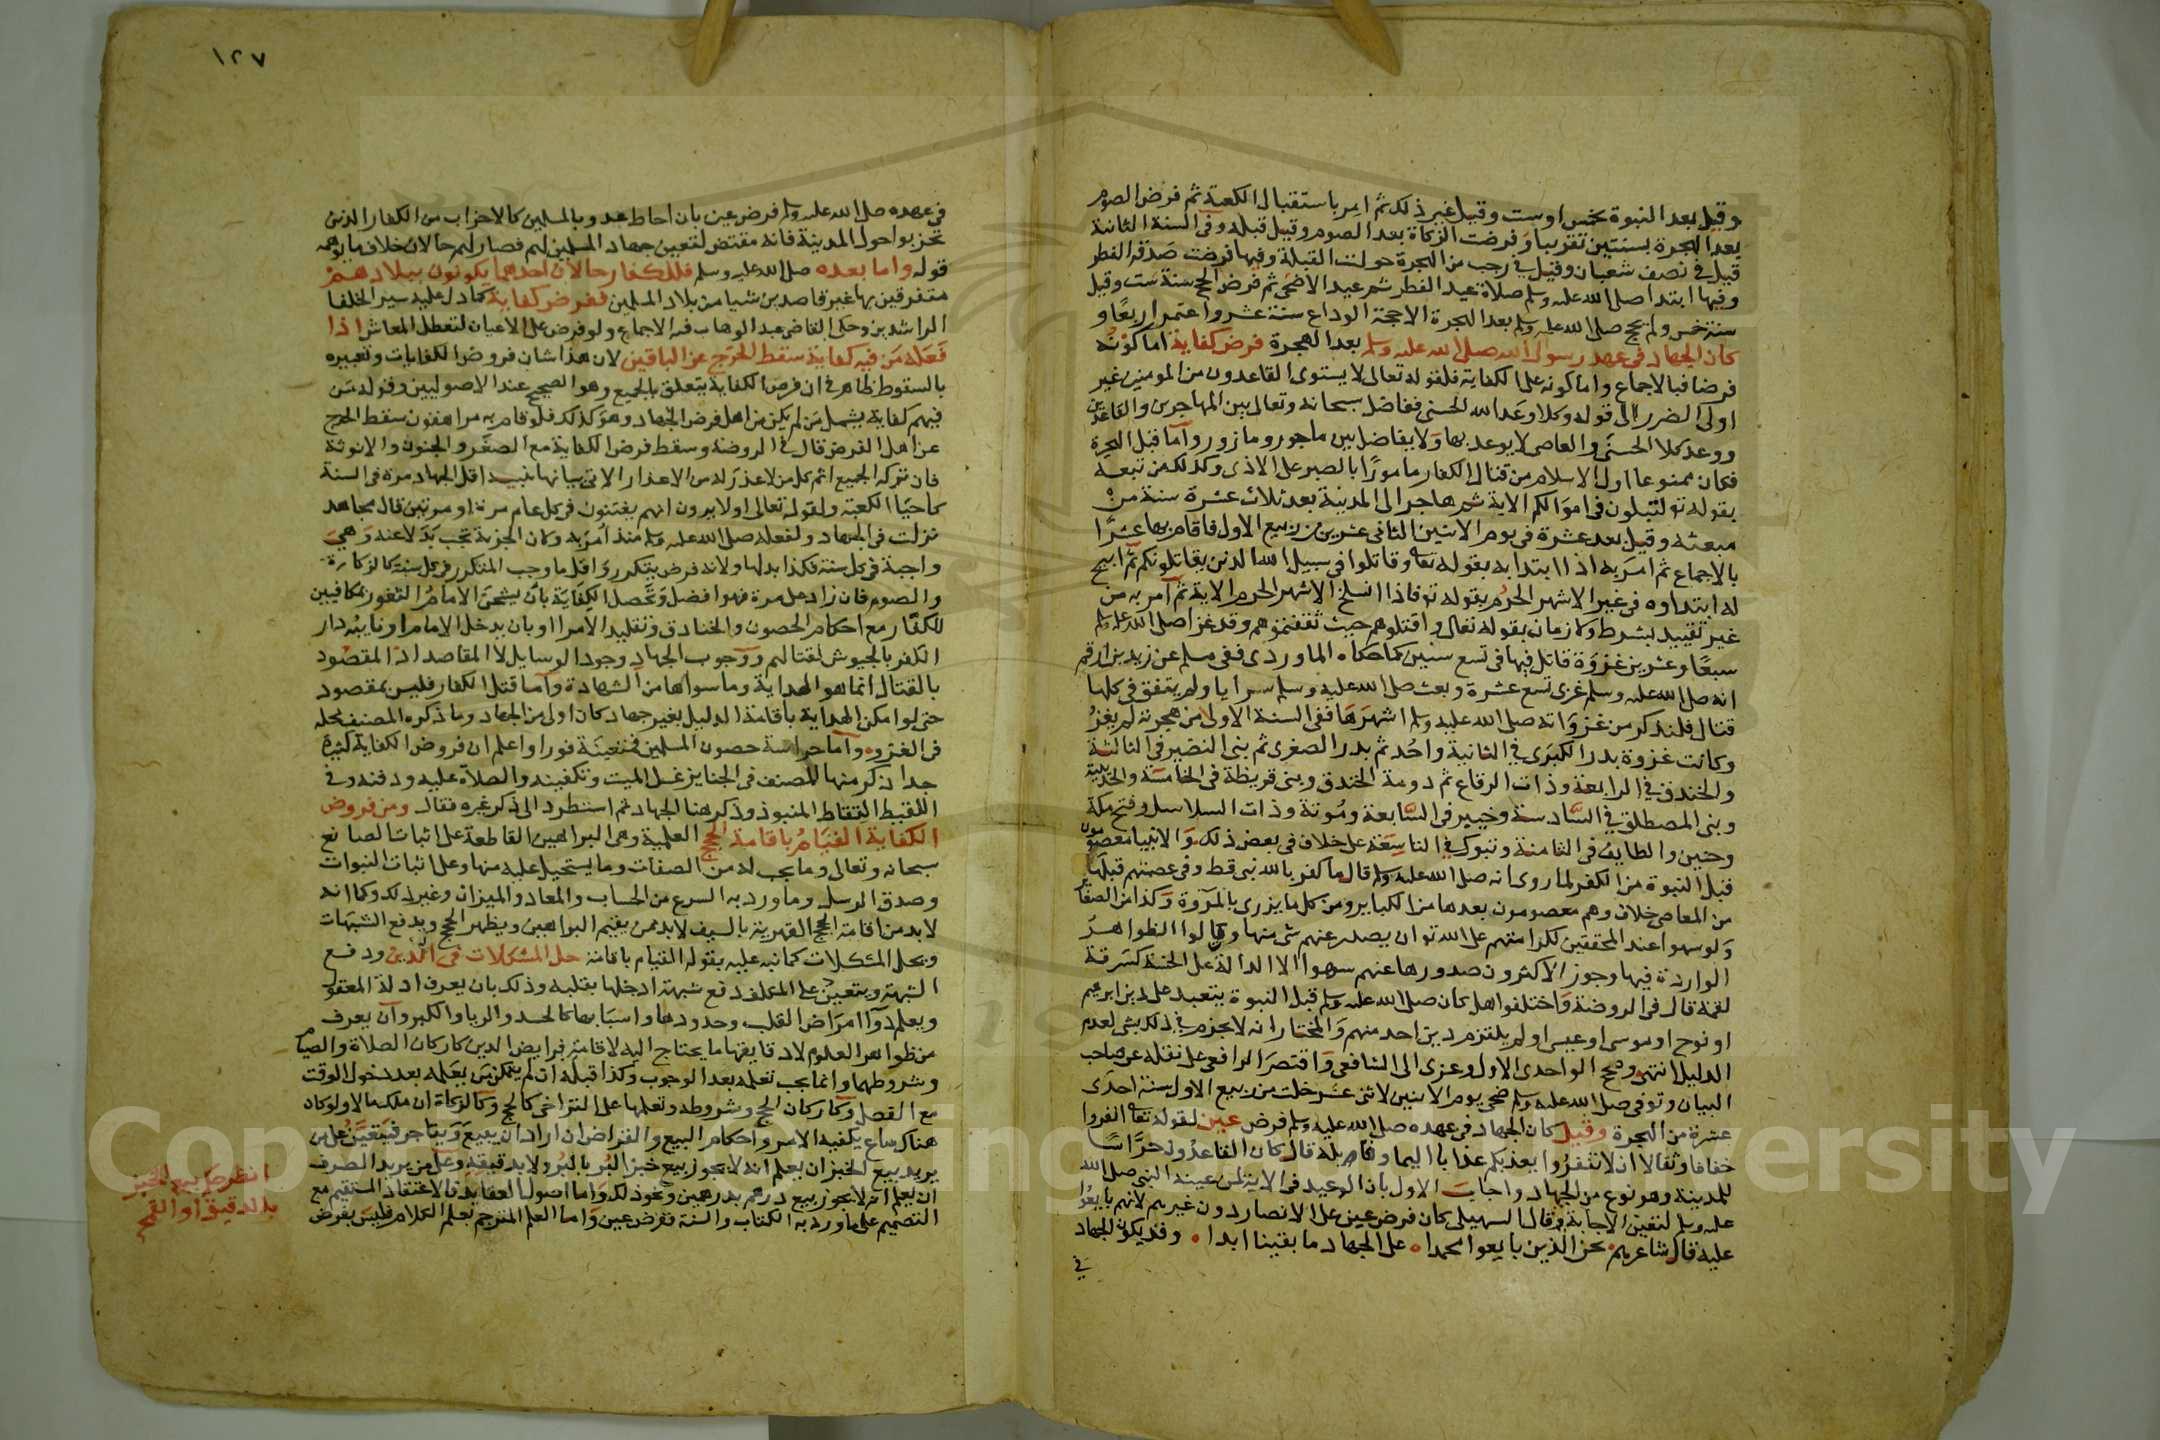 وقيل بعد النبوة بخمس اوست وقيل غير ذلك ثم امر باستقبال الكعبة ثم فرض الصوم
بعد الهجرة بسنتين تقريبا وفرضت الزكاة بعد الصوم وقيل قبله وفي السنة الثانية
قيل في نصف شعبان وقيل في رجب من الهجرة حولت القبلة وفيها فرضت صدقة الفطر
وفيها ابتدا صلى الله عليه وسلم صلاة عيد الفطر ثم عيد الاضحى ثم فرض الحج سنة ست وقيل
سنة خمس ولم يحج صلى الله عليه وسلم بعد الهجرة الا حجة الوداع سنة عشر واعتمر اربعا و
كان الجهاد في عهد رسول الله صلى الله عليه وسلم بعد الهجرة فرض كفاية اما كونه
فرضا فبالاجماع واما كونه على الكفاية فلقوله تعالى لا يستوى القاعدون من المومنين غير
اولى الضرر الى قوله وكلا وعد الله الحسنى ففاضل سبحانه وتعالى بين المهاجرين والقاعدين
ووعد كلا الحسنى والعاصى لا يوعد بها ولا يفاضل بين ماجور ومازور واما قبل الهجرة
فكان ممنوعا اول الاسلام من قتال الكفار مامورا بالصبر على الاذى وكذلك من تبعه
بقوله تع لتبلون في اموالكم الاية ثم هاجر الى المدينة بعد ثلاث عشرة سنة من
مبعثه وقيل بعد عشرة في يوم الاثنين الثانى عشر من ربيع الاول فاقام بها عشرا
بالاجماع ثم امر به اذا ابتدا به بقوله تعا وقاتلوا في سبيل الله الذين يقاتلونكم ثم ابيح
له ابتداوه في غير الاشهر الحرم بقوله تع فاذا انسلخ الاشهر الحرم الاية ثم امر به من
غير تقييد بشرط ولا زمان بقوله تعالى واقتلوهم حيث ثقفتموهم وقد غزا صلى الله عليه وسلم
سبعا وعشرين غزوة قاتل فيها في تسع سنين كما حكاه الماوردى ففى مسلم عن زيد بن ارقم
انه صلى الله عليه وسلم غزى تسع عشرة وبعث صلى الله عليه وسلم سرايا ولم يتفق في كلها
قتال فلنذكر من غزواته صلى الله عليه وسلم اشهرها ففى السنة الاولى من هجرته لم يغز
وكانت غزوة بدر الكبرى في الثانية واحد ثم بدر الصغرى ثم بنى النضير في الثالثة
والخندق في الرابعة وذات الرقاع ثم دومة الخندق وبنى قريظة في الخامسة والحديبية
وبنى المصطلق في السادسة وخيبر في السابعة وموتة وذات السلاسل وفتح مكة
وحنين والطايف في الثامنة وتبوك في التاسعة على خلاف في بعض ذلك والانبيا معصومون
قبل النبوة من الكفر لما روى انه صلى الله عليه وسلم قال ما كفر بالله نبى قط وفي عصمتهم قبلها
من المعاصى خلاف وهم معصومون بعدها من الكباير ومن كل ما يزرى بالمروة وكذا من الصغا
ولو سهوا عند المحققين لكرامتهم على الله تع ان يصدر عنهم شى منها واولوا الظواهر
الواردة فيها وجوز الاكثرون صدورها عنهم سهوا الا الدالة على الخسة كسرقة
لقمة قال في الروضة واختلفوا هل كان صلى الله عليه وسلم قبل النبوة يتعبد على دين ابرهيم
او نوح او موسى او عيسى او لم يلتزم دين احد منهم والمختار انه لا يجزم في ذلك بشى لعدم
الدليل انتهى وصحح الواحدى الاول وعزى الى الشافعى واقتصر الرافعى على نقله عن صاحب
البيان وتوفى صلى الله عليه وسلم ضحى يوم الاثنين لاثنى عشر خلت من ربيع الاول سنة احدى
عشرة من الهجرة وقيل كان الجهاد في عهده صلى الله عليه وسلم فرض عين لقوله تعا انفروا
خفافا وثقالا ان لا تنفروا يعذبكم عذابا اليما وقال كان القاعدون حراسا
للمدينة وهو نوع من الجهاد واجاب الاول بان الوعيد في الاية لمن عينه النبى صلى الله
عليه وسلم لتعين الاجابة وقال السهيلى كان فرض عين على الانصار دون غيرهم لانهم بايعوا
عليه قال شاعرهم نحن الذين بايعوا محمدا على الجهاد ما بقينا ابدا وقد يكون الجهاد
في
١٢٧
في عهده صلى الله عليه وسلم فرض عين بان احاط عدو بالمسلمين كالاحزاب من الكفار الذين
تحزبوا حول المدينة فانه مقتض لتعين جهاد المسلمين لهم فصار لهم حالان خلاف ما يوهمه
قوله واما بعده صلى الله عليه وسلم فللكفار حالان احدهما يكونون ببلادهم
متفرقين بها غير قاصدين شيا من بلاد المسلمين ففرض كفاية كما دل عليه سير الخلفا
الراشدين وحكى القاضى عبد الوهاب فيه الاجماع ولو فرض على الاعيان لتعطل المعاش اذا
فعله من فيه كفاية سقط الحرج عن الباقين لان هذا شان فروض الكفايات وتعبيره
بالسقوط ظاهر في ان فرض الكفاية يتعلق بالجميع وهو الصحيح عند الاصوليين وقوله من
فيهم كفاية يشمل من لم يكن من اهل فرض الجهاد وهو كذلك فلو قام به مراهقون سقط الحرج
عن اهل الفرض قال في الروضة وسقط فرض الكفاية مع الصغر والجنون والانوثة
فان تركه الجميع اثم كل من لا عذر له من الاعذار الاتى بيانها تنبيه اقل الجهاد مرة في السنة
كاحيا الكعبة ولقوله تعالى اولا يرون انهم يفتنون في كل عام مرة او مرتين قال مجاهد
نزلت في الجهاد ولفعله صلى الله عليه وسلم منذ امر به وكان الجزية تجب بدلا عنه وهى
واجبة في كل سنة فكذا بدلها ولانه فرض يتكرر واقل ما وجب المتكرر في كل سنة كالزكاة
والصوم فان زاد على مرة فهو افضل وتحصل الكفاية بان يشحن الامام الثغور بمكافيين
للكفار مع احكام الحصون والخنادق وتقليد الامرا او بان يدخل الامام او نايبه دار
الكفر بالجيوش لقتالهم ووجوب الجهاد وجود الوسايل لا المقاصد اذ المقصود
بالقتال انما هو الهداية وما سواها من الشهادة واما قتل الكفار فليس بمقصود
حتى لو امكن الهداية باقامة الدليل بغير جهاد كان اولى من الجهاد وما ذكره المصنف محله
في الغزو واما حراسة حصون المسلمين فمتعينة فورا واعلم ان فروض الكفاية كثيرة
جدا ذكر منها المصنف في الجنايز غسل الميت وتكفينه والصلاة عليه ودفنه وفي
اللقيط التقاط المنبوذ وذكر هنا الجهاد ثم استطرد الى ذكر غيره فقال ومن فروض
الكفاية القيام باقامة الحجج العلمية وهى البراهين القاطعة على اثبات الصانع
سبحانه وتعالى وما يجب له من الصفات وما يستحيل عليه منها وعلى اثبات النبوات
وصدق الرسل وما ورد به الشرع من الحساب والمعاد والميزان وغير ذلك وكما انه
لا بد من اقامة الحجج القهرية بالسيف لا بد ممن يقيم البراهين ويظهر الحجج ويدفع الشبهات
ويحل المشكلات كما نبه عليه بقوله القيام باقامة حل المشكلات في الدين ودفع
الشبهة ويتعين على المكلف دفع شبهة ادخلها بقلبه وذلك بان يعرف ادلة المعقول
ويعلم دوا امراض القلب وحدودها واسبابها كالحسد والريا والكبر وان يعرف
من ظواهر العلوم لا دقايقها ما يحتاج اليه لاقامة فرايض الدين كاركان الصلاة والصيام
وشروطهما وانما يجب تعلمه بعد الوجوب وكذا قبله ان لم يتمكن من تعلمه بعد دخول الوقت
مع الفعل وكاركان الحج وشروطه وتعلمها على التراخى كالحج وكالزكاة ان ملك مالا ولو كان
هناك ساع يكفيه الامر واحكام البيع والقراض ان اراد ان يبيع ويتاجر فيتعين على من
يريد بيع الخبز ان يعلم انه لا يجوز بيع خبز البر بالبر ولا بدقيقه وعلى من يريد الصرف
ان يعلم انه لا يجوز بيع درهم بدرهمين ونحو ذلك واما اصول العقايد فالاعتقاد المستقيم مع
التصميم على ما ورد به الكتاب والسنة ففرض عين واما العلم المترجم بعلم الكلام فليس بفرض
انظر بيع الخبز
بالدقيق او القمح